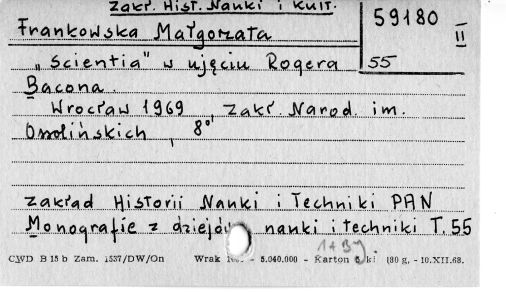 Zakł. Hist. Nauki i Kult.
59180
II
Frankowska Małgorzata
55
„Scientia" w ujęciu Rogera
Bacona.
Wrocław 1969, Zakł. Narod. im.
Ossolińskich, 8°
Zakład Historii Nauki i Techniki PAN
Monografie z dziejów nauki i techniki T. 55
1+BJ.
CWD B 15 b Zam. 1537/DW/On Wrak - 5.040.000 - Karton ki 180 g, - 10.XII.68.